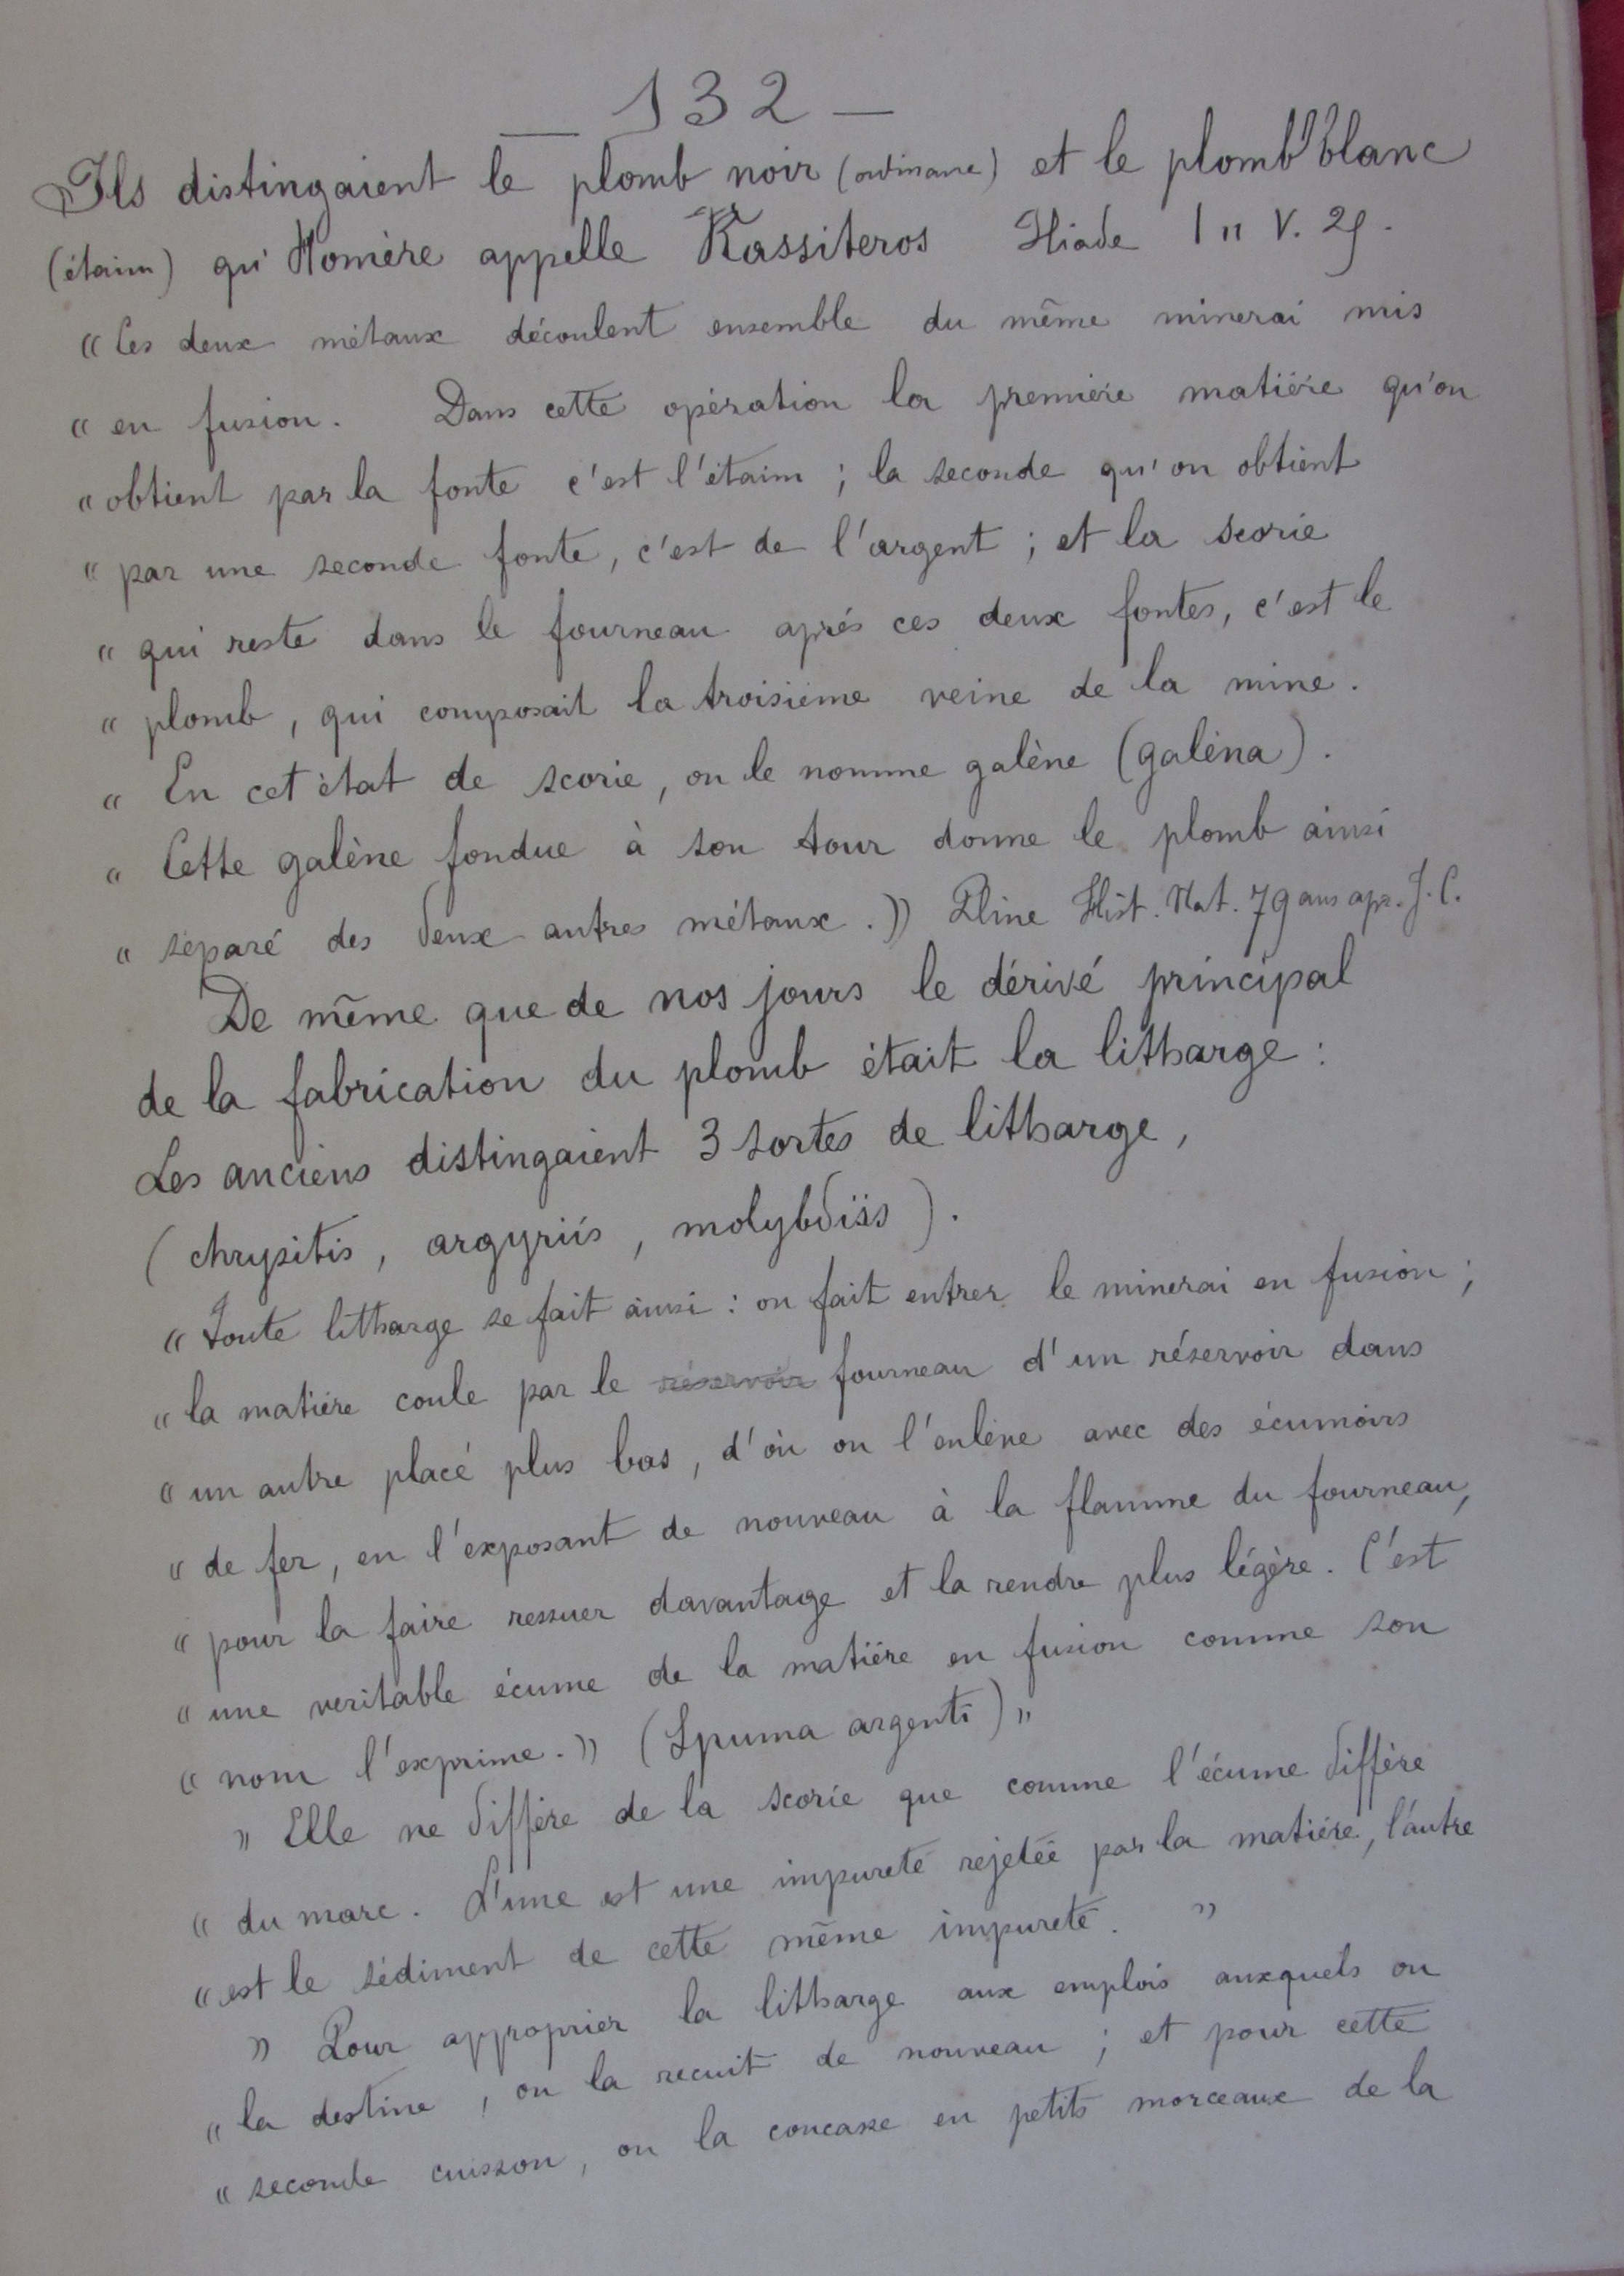 — 132 —
Ils distingaient le plomb noir (ordinaire) et le plomb blanc
(étaim) qu'Homère appelle Kassiteros Iliade 1 " V. 25.
« Ces deux métaux découlent ensemble du même minerai mis
« en fusion. Dans cette opération la première matière qu'on
« obtient par la fonte c'est l'étaim ; la seconde qu'on obtient
« par une seconde fonte, c'est de l'argent ; et la scorie
« qui reste dans le fourneau après ces deux fontes, c'est le
« plomb, qui composait la troisième veine de la mine.
« En cet état de scorie, on le nomme galène (galéna).
« Cette galène fondue à son tour donne le plomb ainsi
« séparé des deux autres métaux.» Pline Hist. Nat. 79 ans apr. J. C.
De même que de nos jours le dérivé principal
de la fabrication du plomb était la litharge :
Les anciens distingaient 3 sortes de litharge,
(chrysitis, argyriis, molybdiïs).
« Toute litharge se fait ainsi : on fait entrer le minerai en fusion ;
« la matière coule par le réservoir fourneau d'un réservoir dans
« un autre placé plus bas, d'où on l'enlève avec des écumoirs
« de fer, en l'exposant de nouveau à la flamme du fourneau,
« pour la faire ressuer davantage et la rendre plus légère. C'est
« une veritable écume de la matière en fusion comme son
« nom l'exprime.» (Spuma argenti) »
» Elle ne diffère de la scorie que comme l'écume diffère
« du marc. L'une est une impureté rejetée par la matière, l'autre
« est le sédiment de cette même impureté. »
» Pour approprier la litharge aux emplois auxquels on
« la destine, on la recuit de nouveau ; et pour cette
« seconde cuisson, on la concasse en petits morceaux de la